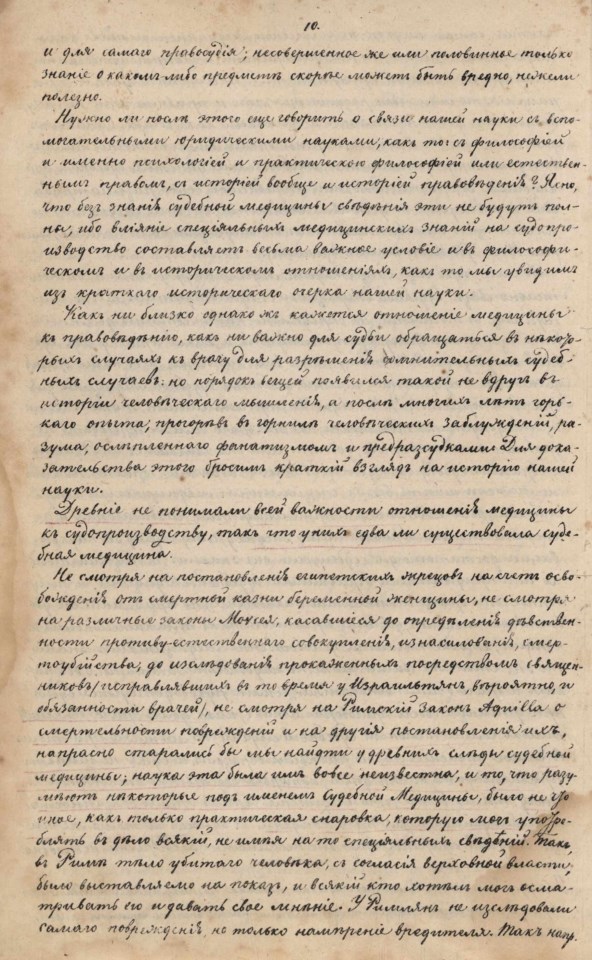 10.
и для самаго правосудія; несовершенное же или половинное только
знаніе о какомъ-либо предметѣ скорѣе можетъ быть вредно, нежели
полезно.
Нужно ли послѣ этого еще говорить о связи нашей науки съ вспо-
могательными юридическими науками, какъ то: съ философіей
и именно психологіей и практическою философіей или естествен-
нымъ правомъ, съ исторіей вообще и исторіей правовѣденія? Ясно,
что безъ знанія судебной медицины свѣдѣнія эти не будутъ пол-
ны, ибо вліяніе спеціальныхъ медицинскихъ знаній на судопро-
изводство составляетъ весьма важное условіе и въ философи-
ческомъ и въ историческомъ отношеніяхъ, какъ то мы увидимъ
изъ краткаго историческаго очерка нашей науки.
Какъ ни близко однакожъ кажется отношеніе медицины
къ правовѣденію, какъ ни важно для судьи обращаться въ нѣкото-
рыхъ случаяхъ къ врачу для разрѣшенія сомнительныхъ судеб-
ныхъ случаевъ: но порядокъ вещей появился такой не вдругъ въ
исторіи человѣческаго мышленія, а послѣ многихъ лѣтъ горь-
каго опыта, прогорѣвъ въ горнилѣ человѣческихъ заблужденій, ра-
зума, ослѣпленнаго фанатизмомъ и предразсудками. Для дока-
зательства этого бросимъ краткій взглядъ на исторію нашей
науки.
Древніе не понимали всей важности отношенія медицины
къ судопроизводству, такъ что у нихъ едва ли существовала суде-
бная медицина.
Не смотря на постановленія египетскихъ жрецовъ на счетъ осво-
божденія отъ смертной казни беременной женщины, не смотря
на различные законы Моисея, касавшіеся до опредѣленія дѣвствен-
ности противу-естественнаго совокупленія, изнасилованія, смер-
тоубійства, до изслѣдованія прокаженныхъ посредствомъ священ-
никовъ /исправлявшихъ въ то время у Израильтянъ, вѣроятно, и
обязанности врачей/, не смотря на Римскій законъ Aquilia о
смертельности поврежденій и на другія постановленія ихъ,
напрасно старались бы мы найдти у древнихъ слѣды судебной
медицины; наука эта была имъ вовсе неизвѣстна, и то, что разу-
мѣютъ нѣкоторые подъ именемъ Судебной Медицины, было не что
иное, какъ только практическая сноровка, которую могъ употре-
блять въ дѣло всякій, не имѣя на то спеціальныхъ свѣдѣній. Такъ
въ Римѣ тѣло убитаго человѣка, съ согласія верховной власти,
было выставляемо на показъ, и всякій кто хотѣлъ могъ осма-
тривать его и давать свое мнѣніе. У Римлянъ не изслѣдовали
самаго поврежденія, но только намѣреніе вредителя. Такъ напр.